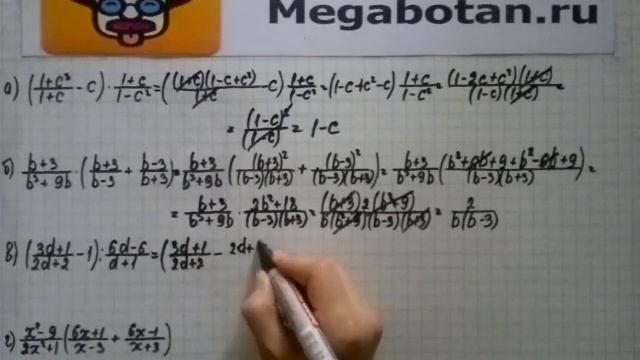 Megabotan.ru
а) ((1+c³)/(1+c) - c) · (1+c)/(1-c²) = ((1+c)(1-c+c²)/(1+c) - c) (1+c)/(1-c²) = (1-c+c²-c) (1+c)/(1-c²) = (1-2c+c²)(1+c)/((1-c)(1+c)) =
= (1-c)²/(1-c) = 1-c
б) (b+3)/(b³+9b) · ((b+3)/(b-3) + (b-3)/(b+3)) = (b+3)/(b³+9b) ((b+3)²/((b-3)(b+3)) + (b-3)²/((b-3)(b+3))) = (b+3)/(b³+9b) (b²+6b+9+b²-6b+9)/((b-3)(b+3)) =
= (b+3)/(b³+9b) · (2b²+18)/((b-3)(b+3)) = (b+3)2(b²+9)/(b(b²+9)(b-3)(b+3)) = 2/(b(b-3))
в) ((3d+1)/(2d+2) - 1) : (6d-6)/(d+1) = ((3d+1)/(2d+2) - 2d+
г) (x²-9)/(2x²+1) ((6x+1)/(x-3) + (6x-1)/(x+3))